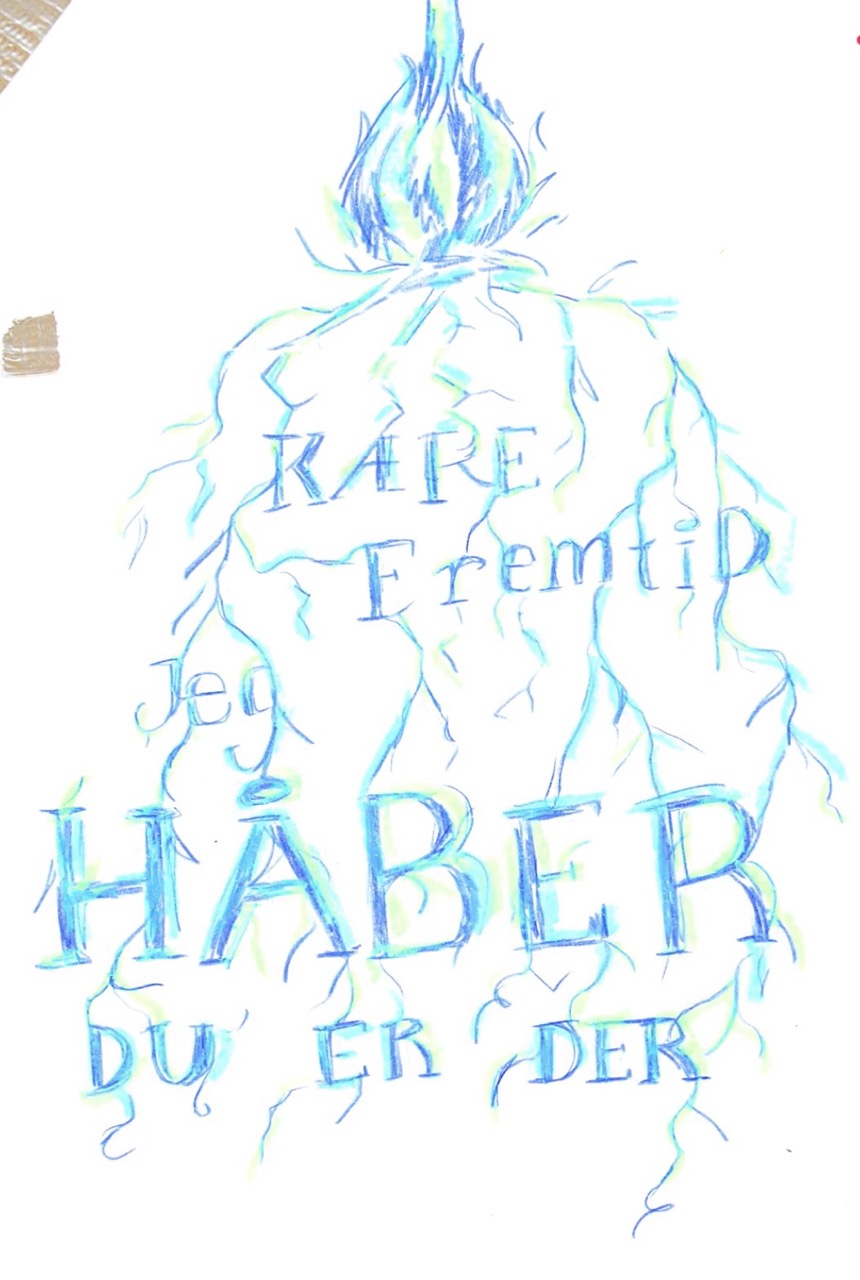 KÆRE
FremtiD
Jeg
HÅBER
DU ER DER